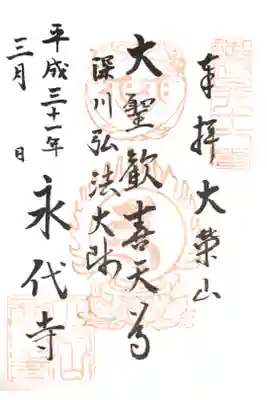 奉拝 大栄山
大聖歓喜天尊
深川弘法大師
永代寺
平成三十一年
三月 日